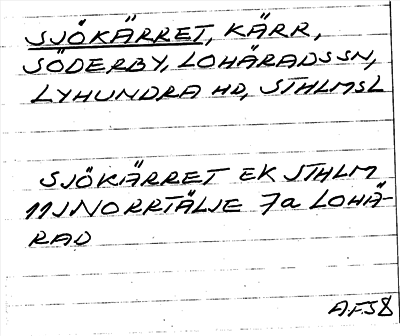 SJÖKÄRRET, KÄRR,
SÖDERBY, LOHÄRADSSN,
LYHUNDRA HD, STHLMSL
SJÖKÄRRET EK STHLM
11J NORRTÄLJE 7a LOHÄ-
RAD
AFS8